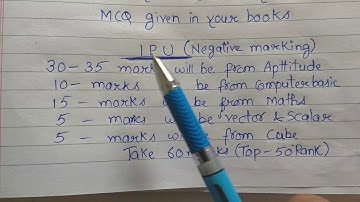 MCQ given in your books
IPU (Negative marking)
30-35 marks will be from Apttitude
10- marks be from Computer basic
15 - marks from Maths
5 - marks be vector & Scalar
5 - marks from Cube
Take 60 marks (Top-50 Rank)